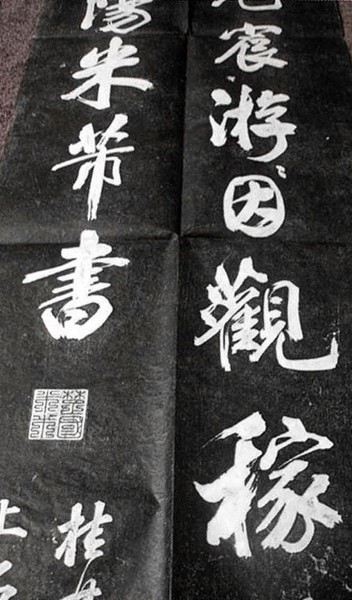 宸游因觀稼
陽米芾書
桂
上